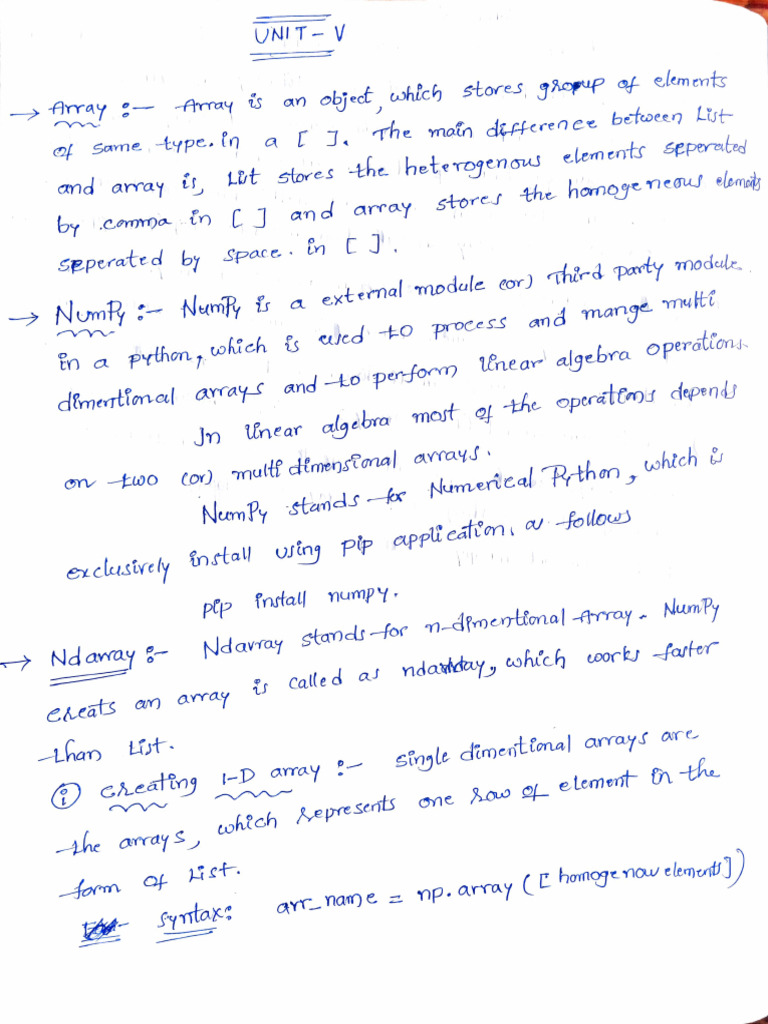 UNIT - V
→ Array :- Array is an object, which stores group of elements
of same type. in a [ ]. The main difference between List
and array is, List stores the heterogenous elements seperated
by comma in [ ] and array stores the homogeneous elements
seperated by space. in [ ].
→ NumPy :- NumPy is a external module (or) Third party module
in a python, which is used to process and mange multi
dimentional arrays and to perform linear algebra operations.
In linear algebra most of the operations depends
on two (or) multi dimensional arrays.
NumPy stands for Numerical Python, which is
exclusively install using pip application, as follows
pip install numpy.
→ Ndarray :- Ndarray stands for n-dimentional Array. NumPy
creats an array is called as ndarray, which works faster
than List.
(i) creating 1-D array :- single dimentional arrays are
the arrays, which represents one row of element in the
form of List.
Syntax: arr_name = np.array ([homogenous elements])